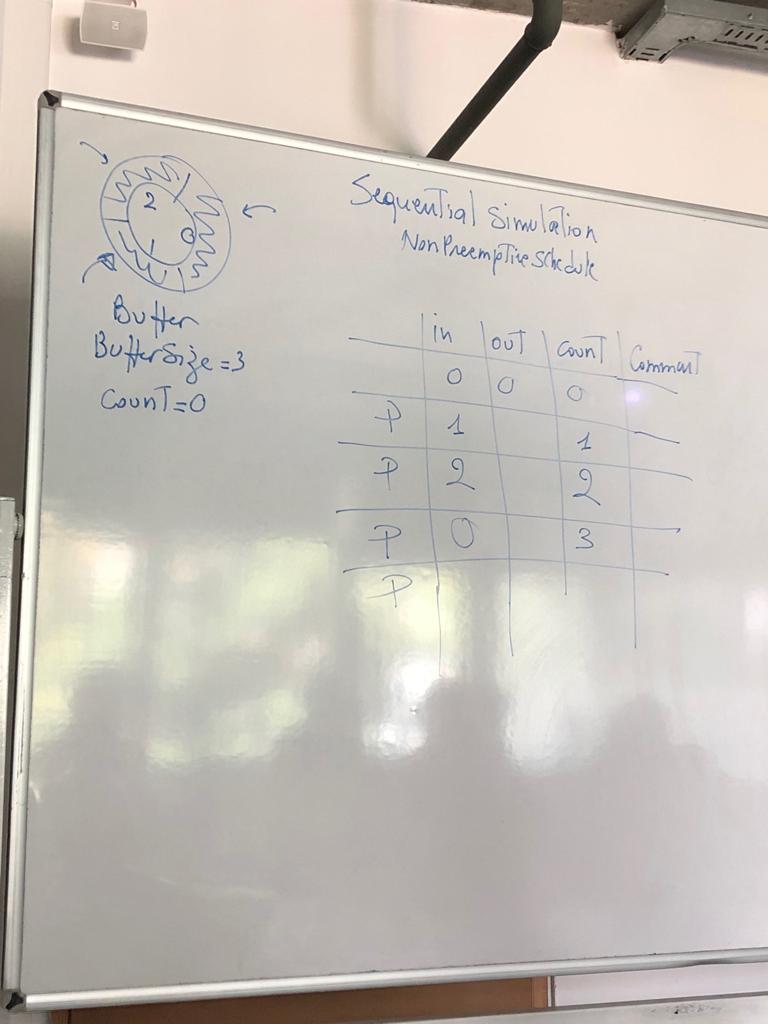 2
0
1
Buffer
BufferSize=3
Count=0
Sequential Simulation
NonPreemptive Schedule
in out count Comment
0 0 0
P 1 1
P 2 2
P 0 3
P